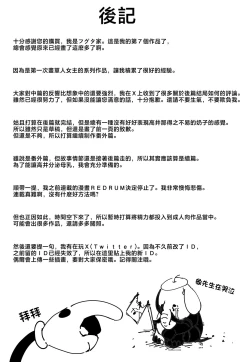 後記
十分感謝您的購買，我是フグタ家。這是我的第7個作品了，
總會感覺原來已經畫了這麼多了啊。
因為是第一次畫單人女王的系列作品，讓我積累了很好的經驗。
大家對中篇的反響比想象中的還要強烈，我在X上收到了很多關於後篇結局如何的評論。
雖然已經很努力了，但如果沒能讓您滿意的話，十分抱歉。還請不要生氣，不要拋棄我。
始且打算在後篇就完結，但是總有一種沒有好好表現高井部得之不易的奶子的感覺。
所以雖然只是草稿，但還是畫了前一頁的放數。
但還是不夠，所以打算繼續制作番外篇。
雖說是番外篇，但故事情節還是接著後篇走的，所以其實應該算是續篇。
為了能讓高井分泌母乳，我會充分準備的。
順帶一提，我之前連載的漫畫REDRUM決定停止了。我非常後悔悲傷。
連載真難啊，沒有什麼好方法嗎？
但也正因如此，時間空下來了，所以暫時打算將精力都投入到成人向作品當中。
可能會出很多作品，還請多多關照。
然後還要提一句，我有在玩X(Twitter)。因為不久前改了ID，
之前留的ID已經失效了，所以在這里貼上我的新ID。
偶爾會上傳一些插畫，要對大家保密哦。記得關注哦。
拜拜
龜先生在哭泣